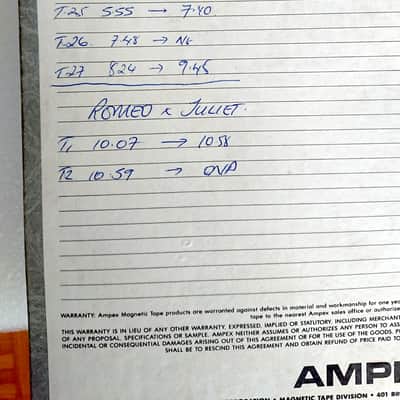 T.25 555 → 7.40
T.26 7.48 → NG
T.27 8.24 → 9.45
ROMEO & JULIET.
T1 10.07 → 10.58
T2 10.59 →
WARRANTY: Ampex Magnetic Tape products are warranted against defects in material and workmanship for one yea
tape to the nearest Ampex sales office or authorize
THIS WARRANTY IS IN LIEU OF ANY OTHER WARRANTY, EXPRESSED, IMPLIED OR STATUTORY, INCLUDING MERCHAN
OF ANY PROPOSAL, SPECIFICATIONS OR SAMPLE. AMPEX NEITHER ASSUMES OR AUTHORIZES ANY PERSON TO ASS
INCIDENTAL OR CONSEQUENTIAL DAMAGES ARISING OUT OF THIS AGREEMENT OR FOR THE USE OF THE GOODS. P
SHALL BE TO RESCIND THIS AGREEMENT AND OBTAIN REFUND OF PRICE PAID TO
AMPE
• MAGNETIC TAPE DIVISION • 401 BR